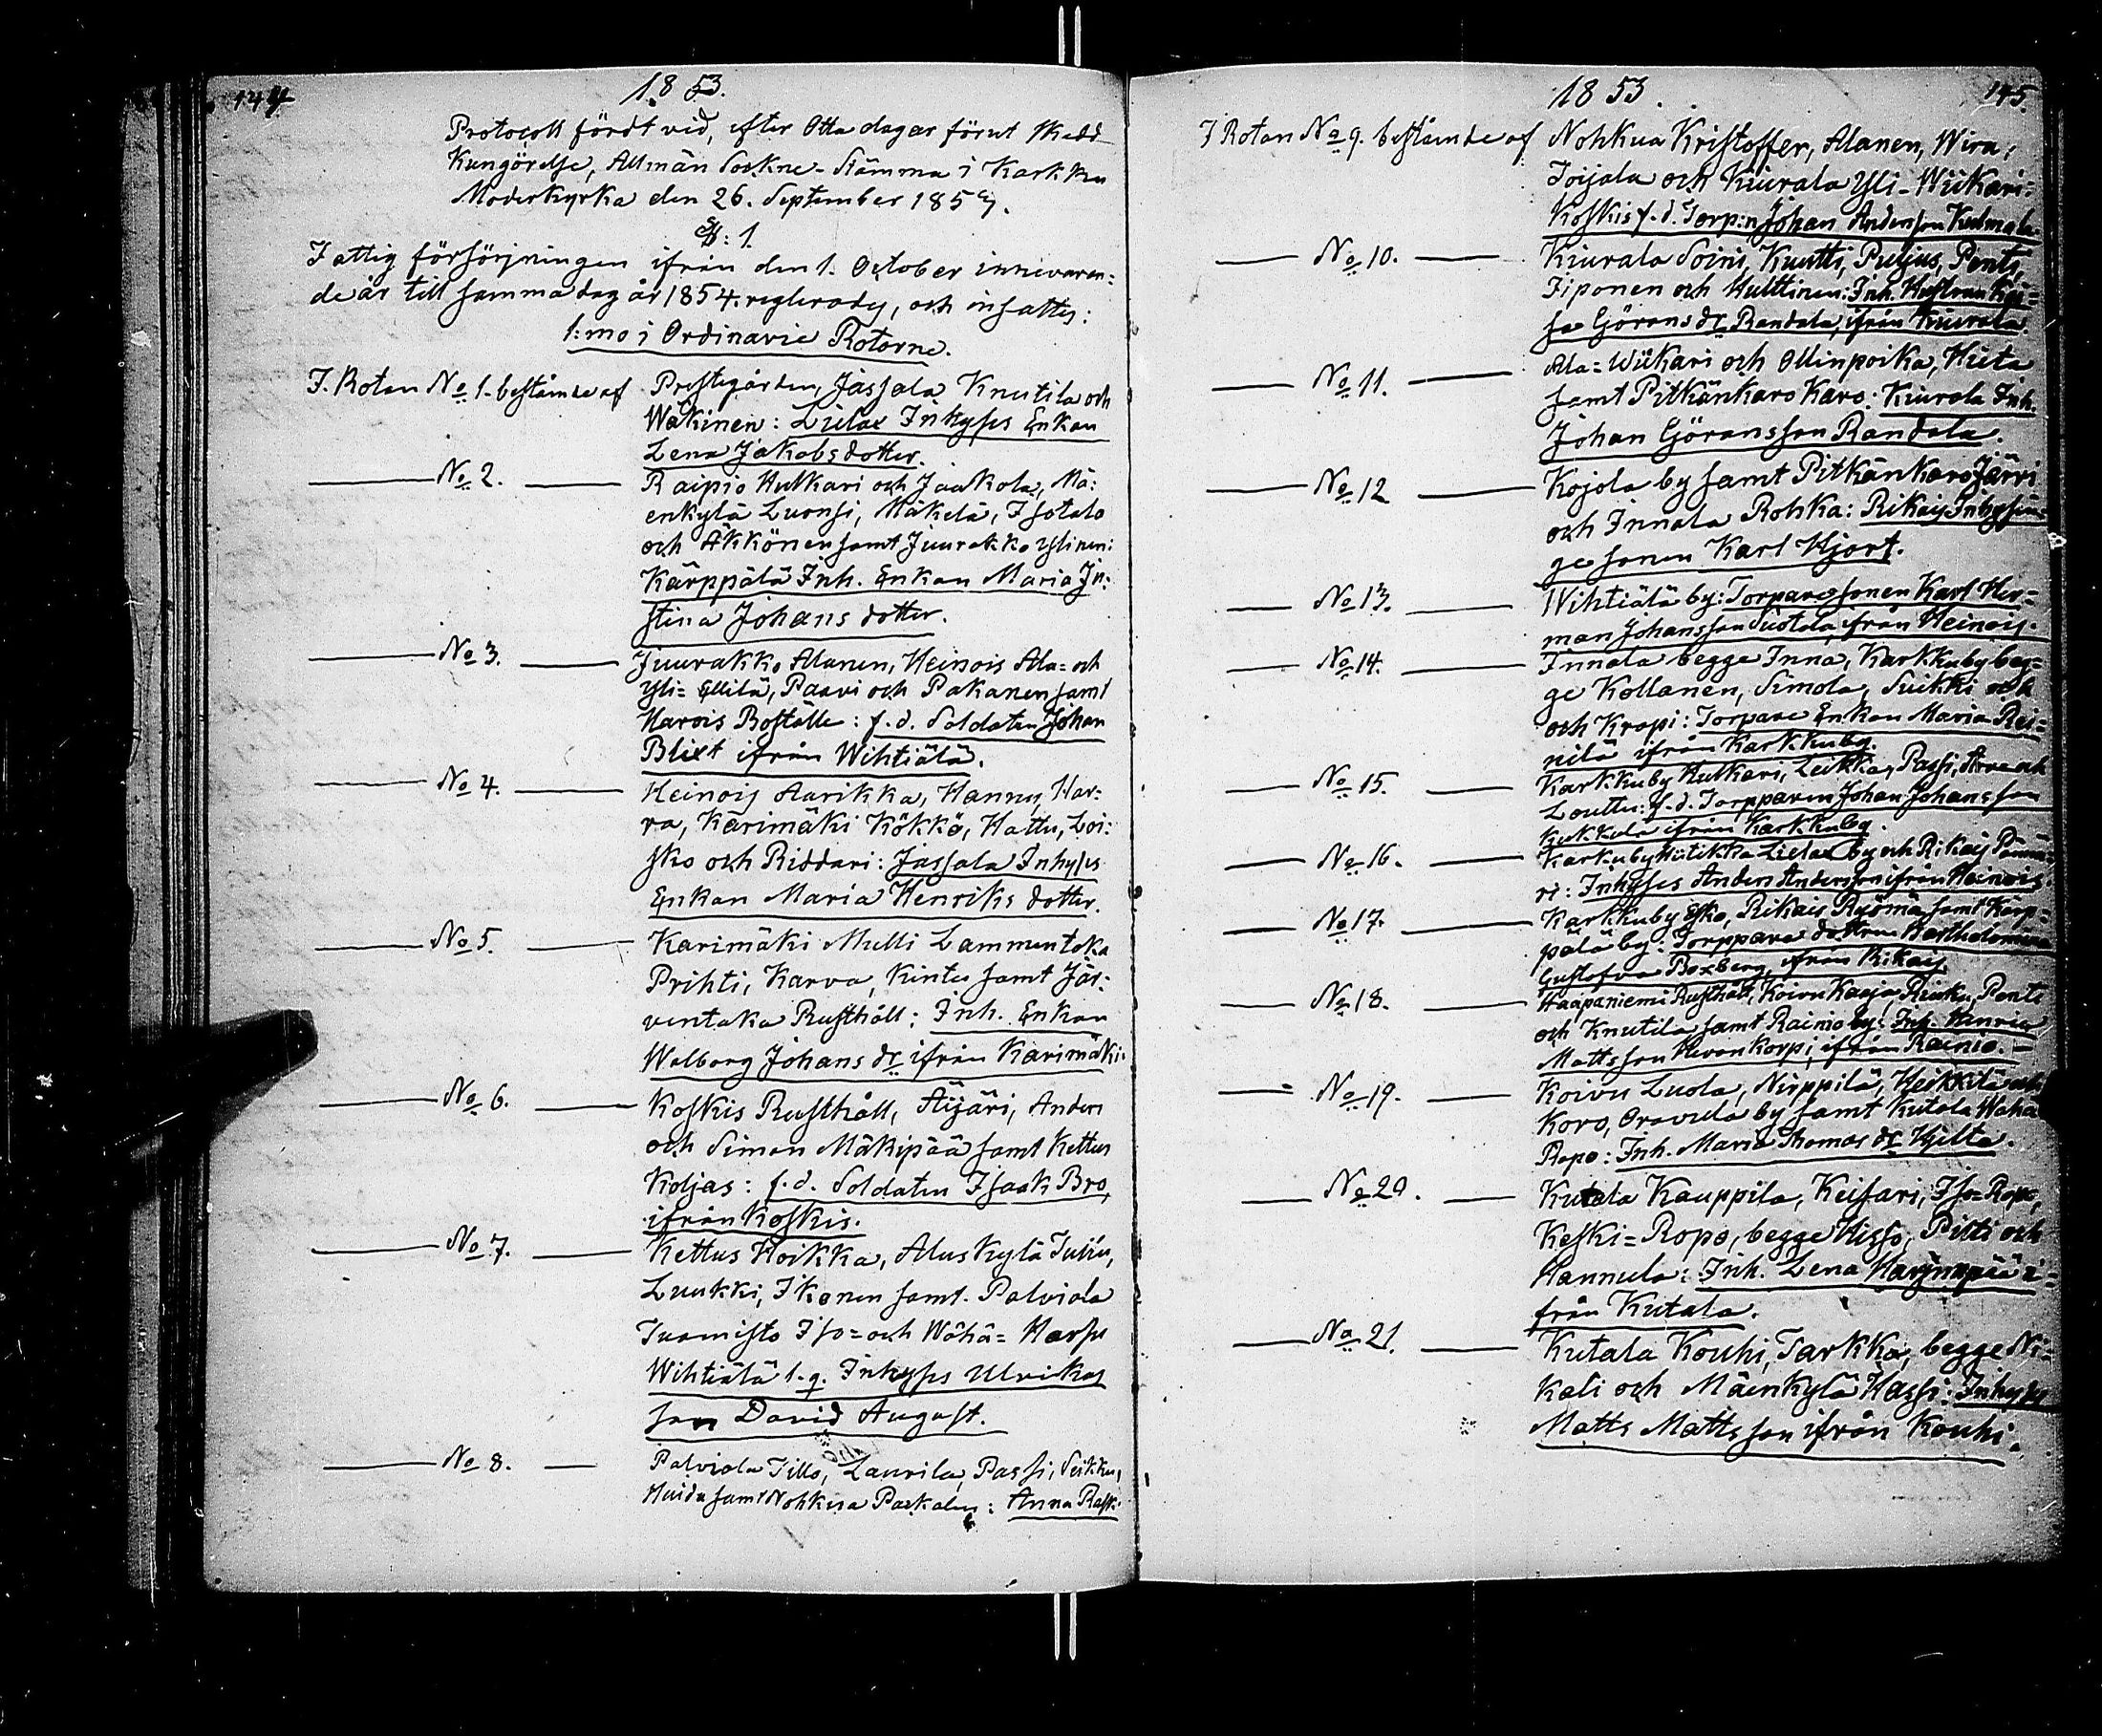 144
1853.
Protocoll fördt vid, efter Otta dagar förut skedd
Kungörelse, Allmän Sockne-Stämma i Karkku
Moderkyrka den 26. September 1853.
§: 1.
Fattig försörjningen ifrån den 1. October innevaran:
de år till samma dag år 1854. reglerades, och insattes:
1:mo i Ordinarie Rotorne.
I. Rotan No 1. bestående af Prestegården, Jassala Knutila och
Wäkinen: Lielax Inhyses Enkan
Lena Jakobsdotter.
No 2. Raipio Hulkari och Jaakola, Mä:
enkylä Luonsi, Mäkelä, Isotalo
och Äkkönen samt Juurakko Ylinen:
Kärppälä Inh. Enkan Maria Ju:
stina Johansdotter.
No 3. Juurakko Alanen, Heinois Ala= och
Yli= Ellilä, Paavi och Pakanen samt
Harois Boställe: f.d. Soldaten Johan
Blixt ifrån Wihtiälä.
No 4. Heinois Aarikka, Hannu, Har:
ra, Karimäki Kökkö, Hattu, Loi:
sko och Riddari: Jassala Inhyses
Enkan Maria Henriksdotter.
No 5. Karimäki Mulli Lammentaka
Prihti, Karva, Kintu samt Jär:
ventaka Rusthåll: Inh. Enkan
Walborg Johans dr ifrån Karimäki.
No 6. Koskis Rusthåll, Äijäri, Anders
och Simon Mäkipää samt Kettus
Koljas: f.d. Soldaten Isaak Bro,
ifrån Koskis.
No 7. Kettus Hoikka, Aluskylä Tuliu,
Luukki, Ikonen samt Palviala
Tuomisto Iso= och Wähä= Harsu
Wihtiälä l.q. Inhyses Ulrikas
son David August.
No 8. Palviala Tillo, Laurila, Passi, Seikku,
Huida samt Nohkua Paskalen: Anna Rask.
145
1853.
I Rotan No 9. bestående af Nohkua Kristoffer, Alanen, Wira,
Toijala och Kiurala Yli-Wiikari:
Koskis f.d. Torp:n Johan Andersson Kulmala.
No 10. Kiurala Soini, Kuutti, Puljus, Pentti,
Tiponen och Hulttinen: Inh. Hustrun Kai=
sa Görans dr Randala, ifrån Kiurala.
No 11. Ala=Wiikari och Ollinpoika, Hieta
samt Pitkänkaro Karo: Kiurala Inh.
Johan Göransson Randala.
No 12 Kojola by samt Pitkänkaro Järvi
och Innala Rohka: Rikais Inhysin=
gesonen Karl Hjort.
No 13. Wihtiälä by: Torparesonen Karl Her=
man Johansson Suotala, ifrån Heinois.
No 14. Innala begge Inna, Karkkuby beg=
ge Kollanen, Simola, Suikki och
och Kropi: Torpare Enkan Maria Rei=
nilä ifrån Karkkuby.
No 15. Karkkuby Hulkari, Leikka, Passi, Arra och
Louttu: f.d. Torpparen Johan Johansson
Kukkola ifrån Karkkuby.
No 16. Karkuby Hiitikka Lielax by och Rikais
ri: Inhyses Anders Andersson ifrån Heinois.
No 17. Karkkuby Esko, Rikais Ryömä samt Kärp=
pälä by: Torppare dottren Bartholomina
Gustafva Boxberg, ifrån Rikais.
No 18. Haapaniemi Rusthåll, Koivu Kaaja, Rinku, Pentti
och Knutila samt Rainio by: Inh. Henric
Mattsson Hevonkorpi, ifrån Rainio.
No 19. Koivu Luola, Nirppilä, Heikkilä och
Koro, Oravula by samt Kutala Wähä
Ropo: Inh. Maria Thomas dr Hjelta.
No 20. Kutala Kauppila, Keisari, Iso=Ropo,
Keski=Ropo, begge Hisso, Pitti och
Hannula: Inh. Lena Harjunpää i=
från Kutala.
No 21. Kutala Kouhi, Tarkka, begge Ni=
kali och Mäenkylä Hassi: Inhyses
Matts Mattsson ifrån Kouhi.